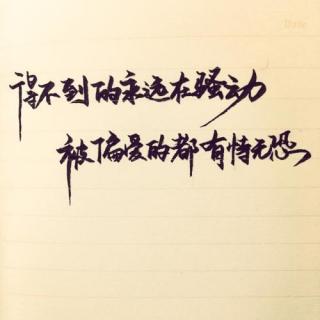 Date
得不到的永远在骚动
被偏爱的都有恃无恐